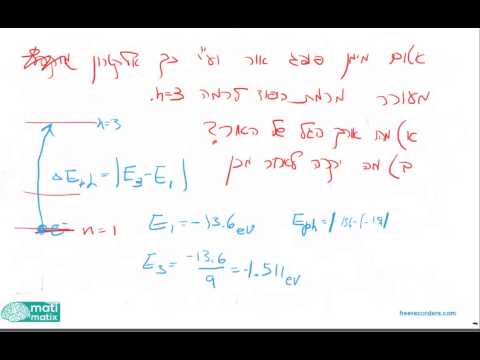 אטום מימן סופג אור וע"י כך אלקטרון
מעורר מרמת יסוד לרמה n=3.
א) מה אורך הגל של האור?
ב) מה יקרה לאחר מכן
n=3
ΔEph = |E3-E1|
e⁻ n=1
E1 = -13.6 ev
Eph = |
E3 = -13.6/9 = -1.511 ev
mati
matix
freerecorders.com